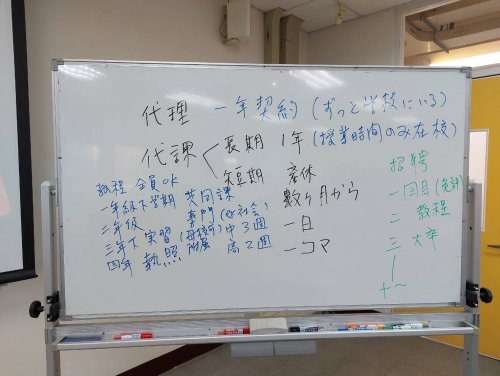 代理 一年契約（ずっと学校にいる）
代課 長期 1年（授業時間のみ在校）
短期 産休
数ヶ月から
一日
一コマ
教程 全員OK
一年級下学期 共同課
二年級 専門（ex社会）
三年下 実習（母校可）中3週
四年 執照 附属 高2週
招聘
一回目（免許
二 教程
三 大卒
十〜